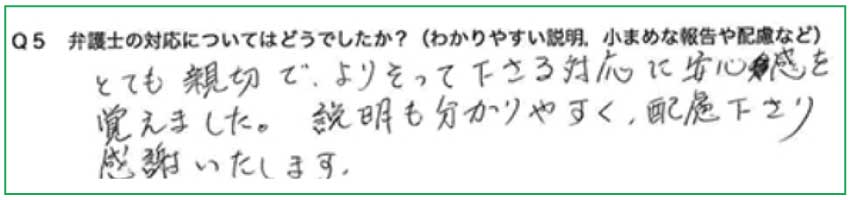 Q5 弁護士の対応についてはどうでしたか？（わかりやすい説明，小まめな報告や配慮など）
とても親切で、よりそって下さる対応に安心感を
覚えました。説明も分かりやすく、配慮下さり
感謝いたします。